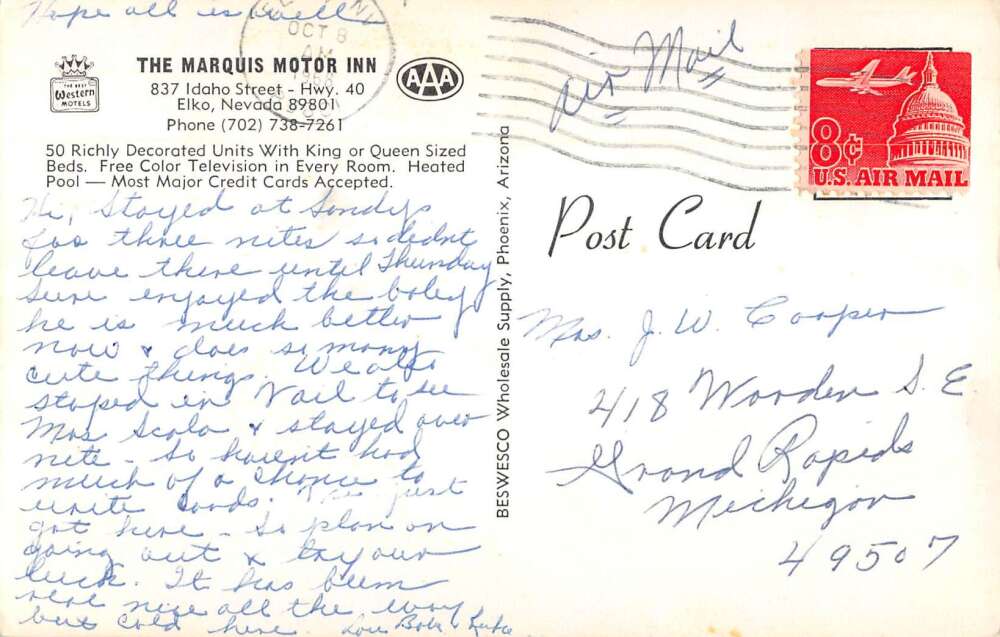 Hope all is well
OCT 8
AM
1968
THE BEST
Western
MOTELS
THE MARQUIS MOTOR INN
837 Idaho Street - Hwy. 40
Elko, Nevada 89801
Phone (702) 738-7261
AAA
50 Richly Decorated Units With King or Queen Sized
Beds. Free Color Television in Every Room. Heated
Pool — Most Major Credit Cards Accepted.
Hi, Stayed at Sandys
for three nites so dednt
leave there until Thursday
Sure enjoyed the baby
he is much better
now & does so many
cute things. We also
stoped in Vail to see
Mrs Scola & stayed over
nite - So havent had
much of a chance to
write cards. just
got here - So plan on
going out & try our
luck. It has been
real nice all the way
but cold here. Lou Bob &
BESWESCO Wholesale Supply, Phoenix, Arizona
Air Mail
8¢
U.S. AIR MAIL
Post Card
Mrs. J. W. Cooper
418 Worden S. E.
Grand Rapids
Michigan
49507